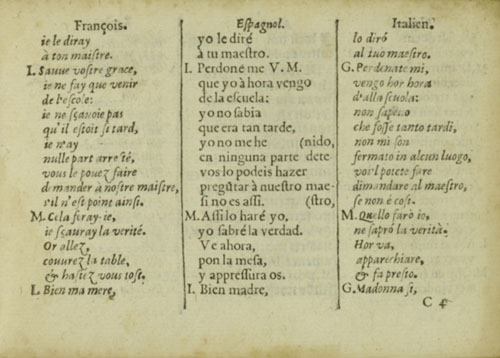 François.
ie le diray
à ton maistre.
I. Sauue vostre grace,
ie ne fay que venir
de l'escole:
ie ne sçauoie pas
qu'il estoit si tard,
ie n'ay
nulle part arresté,
vous le pouez faire
demander à nostre maistre,
s'il n'est point ainsi.
M. Cela feray-ie,
ie sçauray la verité.
Or allez,
couurez la table,
& hastez vous tost.
I. Bien ma mere,
Espagnol.
yo le diré
à tu maestro.
I. Perdoné me V. M.
que yo à hora vengo
de la escuela:
yo no sabia
que era tan tarde,
yo no me he (nido,
en ninguna parte dete
vos lo podeis hazer
pregũtar à nuestro mae-
si no es assi. (stro,
M. Assi lo haré yo,
yo sabré la verdad.
Ve ahora,
pon la mesa,
y appressura os.
I. Bien madre,
Italien.
lo diró
al tuo maestro.
G. Perdonate mi,
vengo hor hora
d'alla scuola:
non sapeuo
che fosse tanto tardi,
non mi son
fermato in alcun luogo,
voi'l potete fare
dimandare al maestro,
se non è cosi.
M. Quello farò io,
ne saprò la verità.
Hor va,
apparechiare,
& fa presto.
G. Madonna si,
C 4